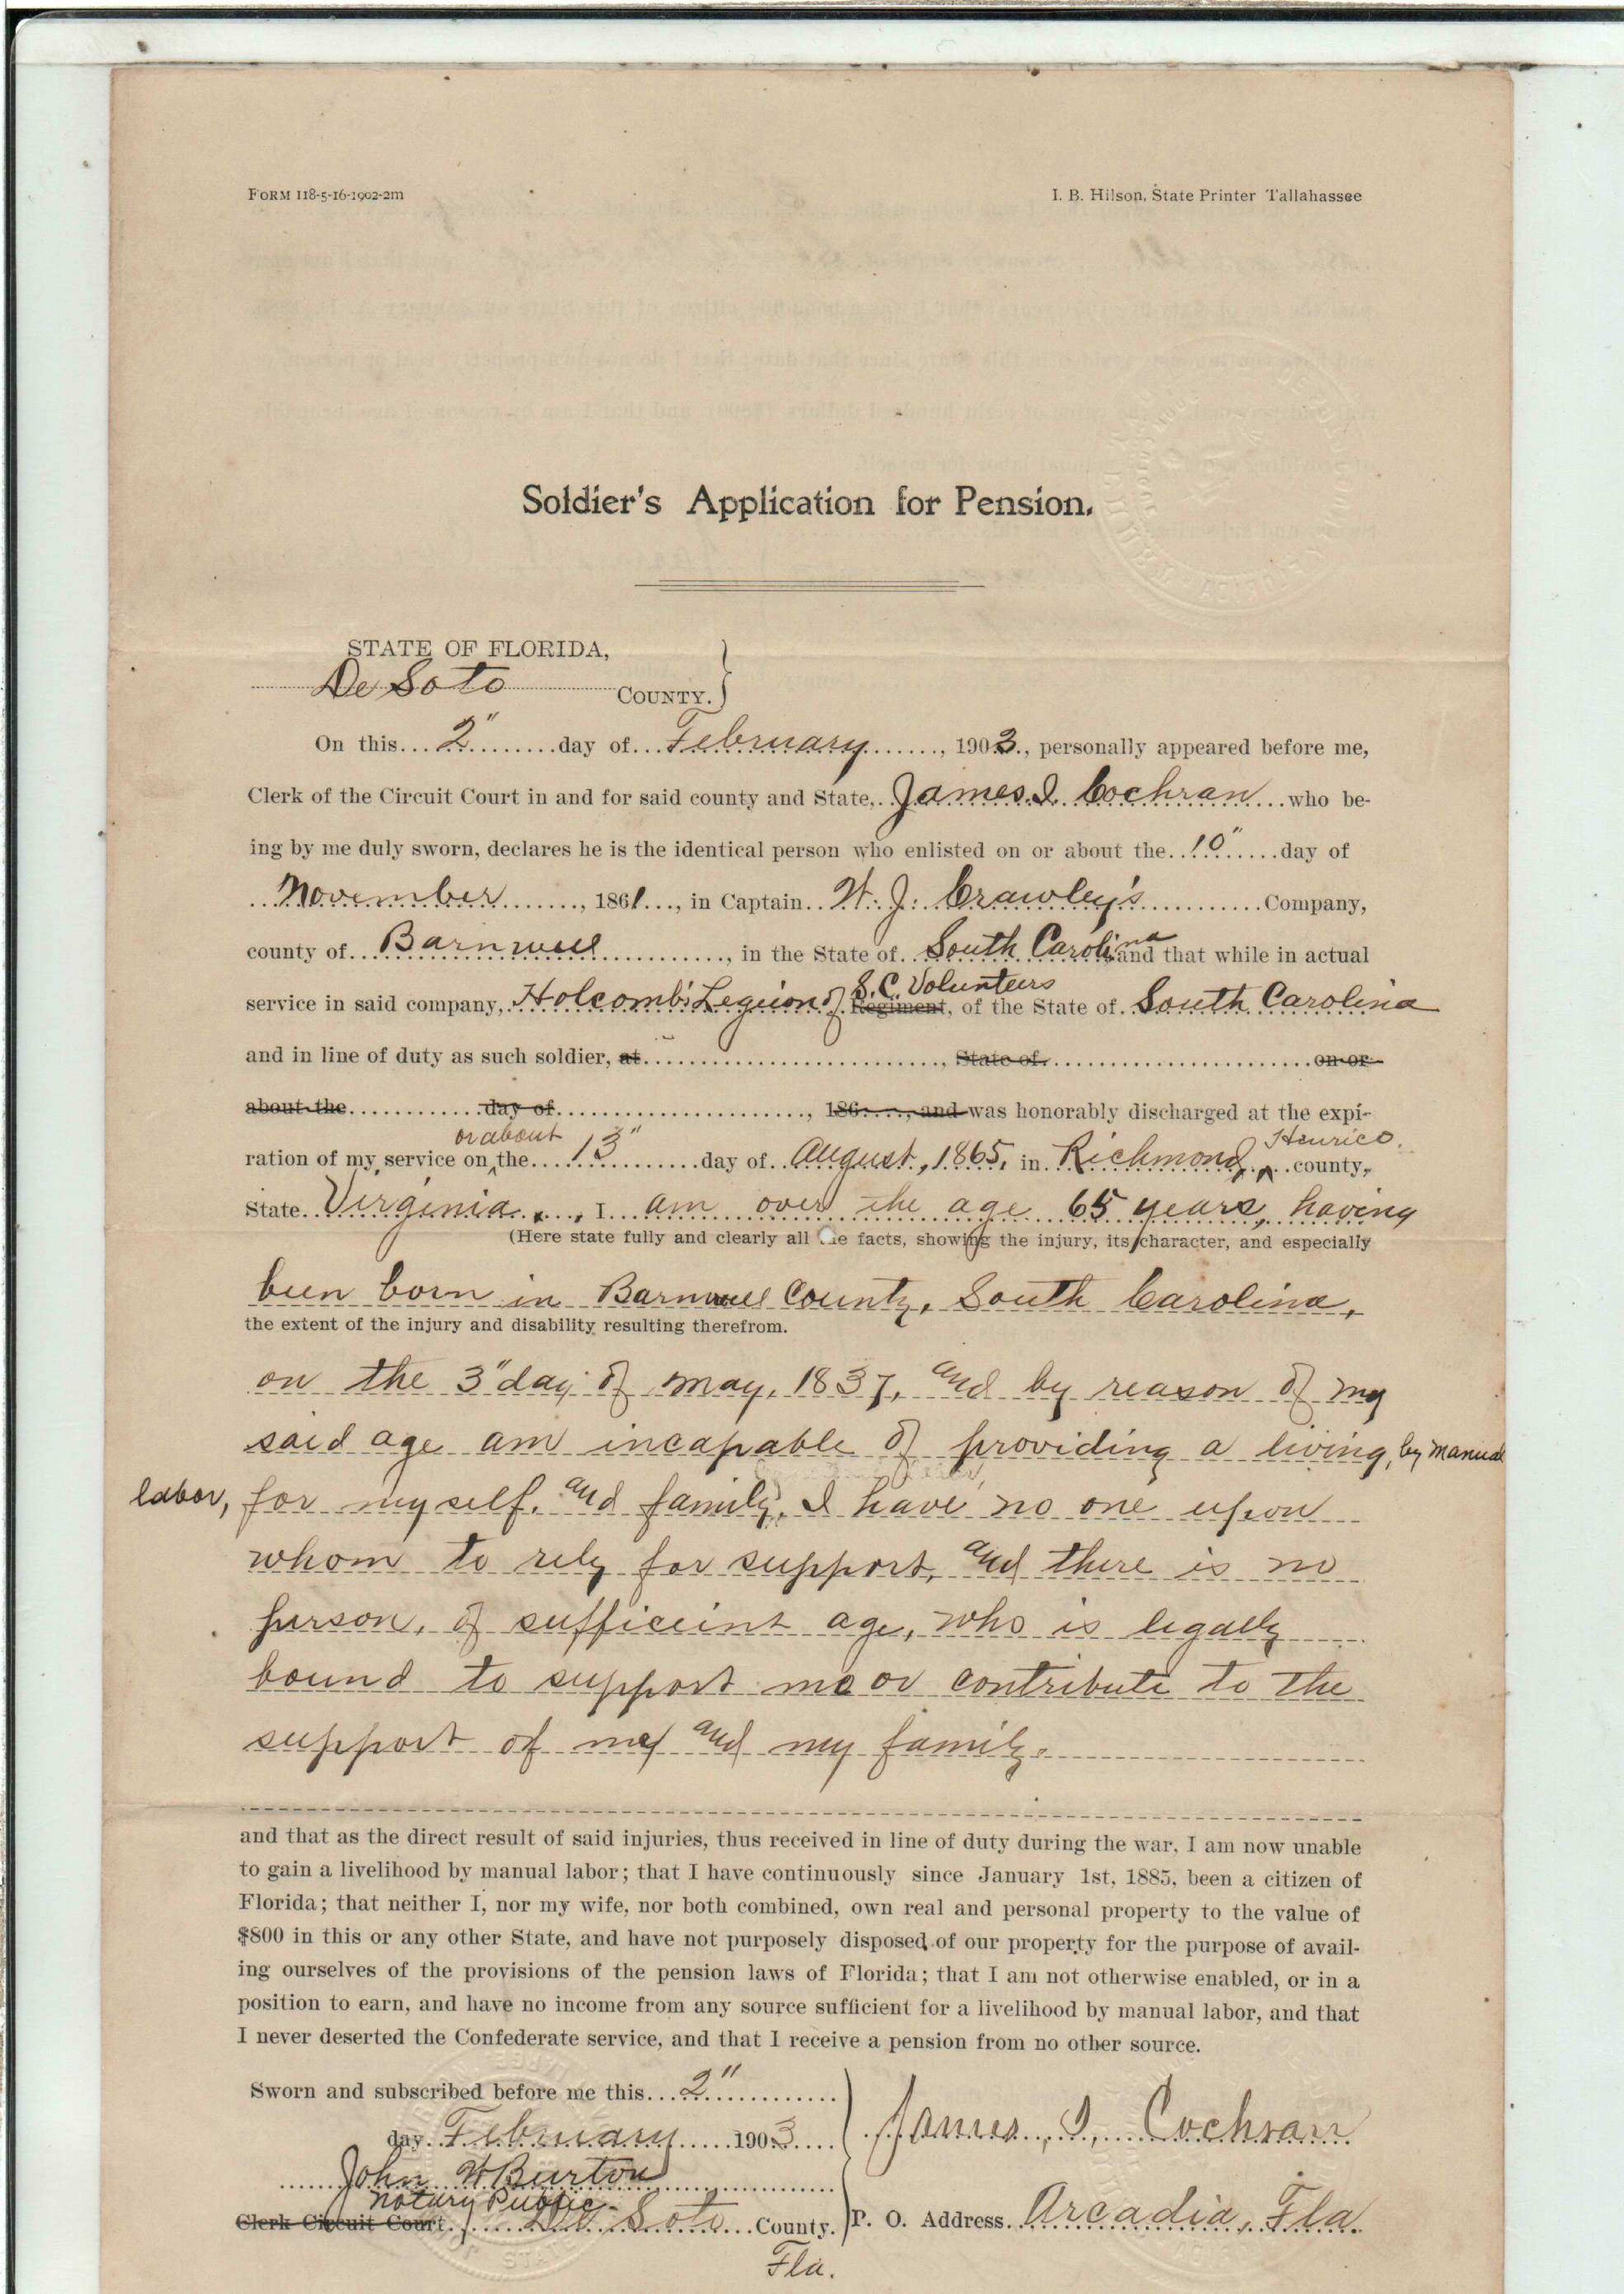 FORM 118-5-16-1902-2m
I. B. Hilson, State Printer Tallahassee
Soldier's Application for Pension.
STATE OF FLORIDA,
De Soto COUNTY.
On this 2" day of February, 1903, personally appeared before me,
Clerk of the Circuit Court in and for said county and State, James I. Cochran who be-
ing by me duly sworn, declares he is the identical person who enlisted on or about the 10" day of
November, 1861, in Captain W. J. Crawley's Company,
county of Barnwell, in the State of South Carolina and that while in actual
S. C. Volunteers
service in said company, Holcomb's Leguion of Regiment, of the State of South Carolina
and in line of duty as such soldier, at, State of on or
about the day of, 186, and was honorably discharged at the expi-
or about Henrico.
ration of my service on the 13" day of August, 1865, in Richmond, county,
State Virginia, I am over the age 65 years, having
(Here state fully and clearly all the facts, showing the injury, its character, and especially
been born in Barnwell County, South Carolina,
the extent of the injury and disability resulting therefrom.
on the 3" day of may, 1837, and by reason of my
said age am incapable of providing a living, by manual
labor, for myself, and family, I have no one upon
whom to rely for support, and there is no
person, of sufficient age, who is legally
bound to support me or contribute to the
support of me and my family.
and that as the direct result of said injuries, thus received in line of duty during the war, I am now unable
to gain a livelihood by manual labor; that I have continuously since January 1st, 1885, been a citizen of
Florida; that neither I, nor my wife, nor both combined, own real and personal property to the value of
$800 in this or any other State, and have not purposely disposed of our property for the purpose of avail-
ing ourselves of the provisions of the pension laws of Florida; that I am not otherwise enabled, or in a
position to earn, and have no income from any source sufficient for a livelihood by manual labor, and that
I never deserted the Confederate service, and that I receive a pension from no other source.
Sworn and subscribed before me this 2"
day February 1903 James, I, Cochran
John W Burton
Notary Public
Clerk Circuit Court De Soto County. P. O. Address Arcadia, Fla.
Fla.